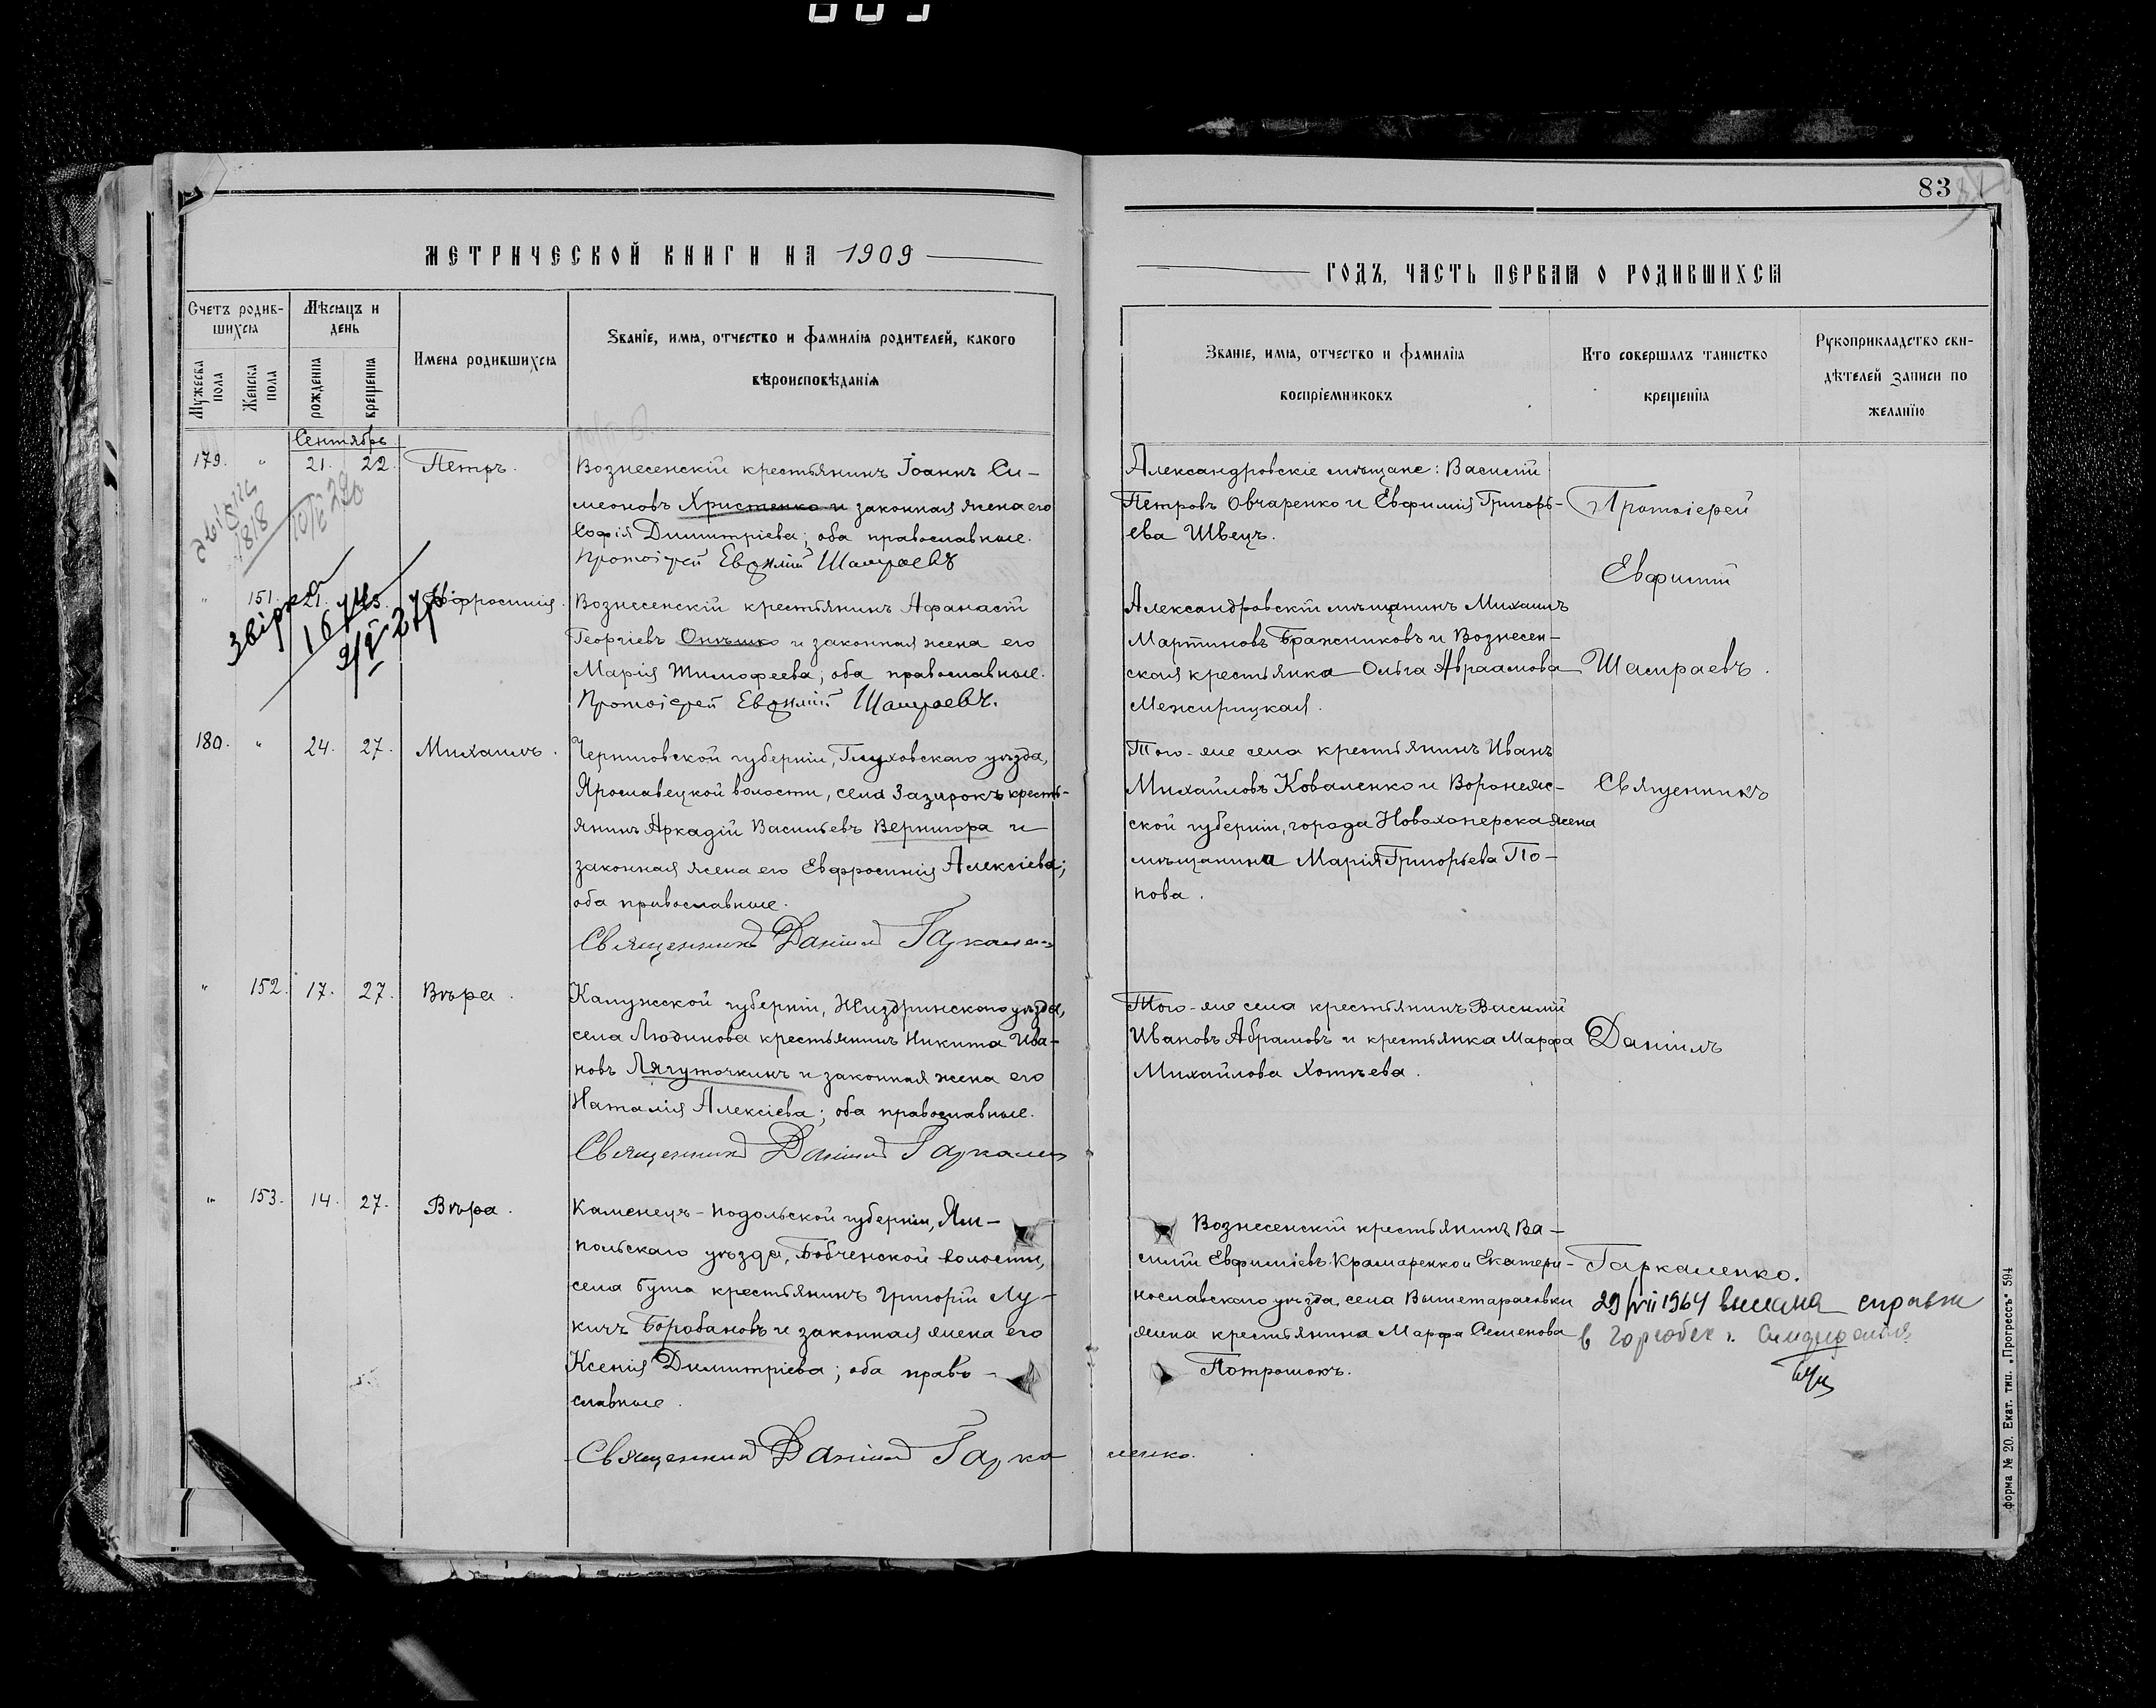 83
МЕТРИЧЕСКОЙ КНИГИ НА 1909
ГОДЪ, ЧАСТЬ ПЕРВАЯ О РОДИВШИХСЯ
Счетъ родив-
шихся
Мѣсяцъ и
день
Мужеска
пола
Женска
пола
рожденія
крещенія
Имена родившихся
Званіе, имя, отчество и фамилія родителей, какого
вѣроисповѣданія
Званіе, имя, отчество и фамилія
воспріемниковъ
Кто совершалъ таинство
крещенія
Рукоприкладство сви-
дѣтелей записи по
желанію
Сентябрь
179. " 21. 22. Петръ.
Вознесенскій крестьянинъ Іоаннъ Си-
меоновъ Христенко и законная жена его
Софія Димитріева; оба православные.
Протоіерей Евѳимій Шамраевъ
Александровскіе мѣщане: Василій
Петровъ Овчаренко и Евфимія Григорь-
ева Швецъ.
Протоіерей
Евфимій
Шамраевъ.
звірка
1818
звірка
" 151. 21. Евфросинія.
Вознесенскій крестьянинъ Афанасій
Георгіевъ Онѣшко и законная жена его
Марія Тимофеева; оба православные.
Протоіерей Евѳимій Шамраевъ.
Александровскій мѣщанинъ Михаилъ
Мартиновъ Бражниковъ и Вознесен-
ская крестьянка Ольга Авраамова
Межирицкая.
180. " 24. 27. Михаилъ.
Черниговской губерніи, Глуховскаго уѣзда,
Ярославецкой волости, села Зазирокъ кресть-
янинъ Аркадій Васильевъ Вернигора и
законная жена его Евфросинія Алексіева;
оба православные.
Священникъ Даніилъ Гаркаленко
Того-же села крестьянинъ Иванъ
Михайловъ Коваленко и Воронеж-
ской губерніи, города Новохоперска жена
мѣщанина Марія Григорьева По-
пова.
Священникъ
" 152. 17. 27. Вѣра.
Калужской губерніи, Жиздринскаго уѣзда,
села Людинова крестьянинъ Никита Ива-
новъ Лягуточкинъ и законная жена его
Наталія Алексіева; оба православные.
Священникъ Даніилъ Гаркален
Того-же села крестьянинъ Василій
Ивановъ Абрамовъ и крестьянка Марфа
Михайлова Хотѣева.
Даніилъ
" 153. 14. 27. Вѣра.
Каменецъ-Подольской губерніи, Ям-
польскаго уѣзда, Бабченской волости,
села Буша крестьянинъ Григорій Лу-
кичъ Борабановъ и законная жена его
Ксенія Димитріева; оба право-
славные.
Священникъ Даніилъ Гаркаленко.
Вознесенскій крестьянинъ Ва-
силій Евфиміевъ Крамаренко и Екатери-
нославскаго уѣзда, села Вышетарасовки
жена крестьянина Марфа Семенова
Потрошокъ.
Гаркаленко.
29/VII 1964 выслана справка
в Горзабек г. Симферополя
форма № 20. Екат. тип. „Прогрессъ“ 594